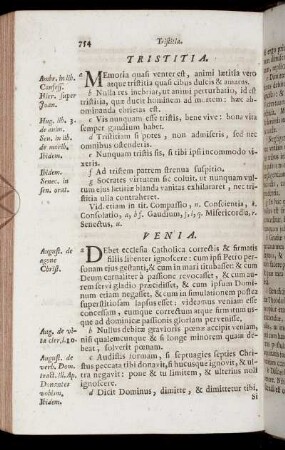 714 Tristitia.
TRISTITIA.
Ambr. in lib. Confess.
a Memoria quasi venter est, animi lætitia vero
atque tristitia quasi cibus dulcis & amarus.
Hier. super Joan.
b Nulla res inebriat, ut animi perturbatio, id est
tristitia, quæ ducit hominem ad mortem: hæc abominanda
ebrietas est.
Hug. lib. 3. de anim.
c Vis nunquam esse tristis, bene vive: bona vita
semper gaudium habet.
Sen. in lib. de morib.
d Tristitiam si potes, non admiseris, sed nec
omnibus ostenderis.
Ibidem.
e Nunquam tristis sis, si tibi ipsi incommodo
vixeris.
Ibidem.
f Ad tristem patrem strenua suspitio.
Senec. in sen. orat.
g Socrates virtutem sic coluit, ut nunquam vultum
ejus lætitiæ blanda vanitas exhilararet, nec tristitia
ulla contraheret.
Vid. etiam in tit. Compassio, Conscientia,
Consolatio, Gaudium, Misericordia,
Senectus,
VENIA.
August. de agone Christ.
a Debet ecclesia Catholica correctis & firmatis
filiis libenter ignoscere: cum ipsi Petro personam
ejus gestanti, & cum in mari titubasset: & cum
Deum carnaliter à passione revocasset, & cum aurem
servi gladio præcidisset, & cum ipsum Dominum
etiam negasset, & cum in simulationem postea
superstitiosam lapsus esset: videamus veniam esse
concessam, eumque correctum atque firmatum usque
ad dominicæ passionis gloriam pervenisse.
b Nullus debitæ gravioris pœnæ accipit veniam,
nisi qualemcunque & si longe minorem quam
debeat, solverit pœnam.
August. de verb. Dom.
c Audistis formam, si septuagies septies Christus
peccata tibi donavit, si hucusque ignovit, & ultra
negavit: pone & tu limitem, & ulterius noli
ignoscere.
Ibidem.
d Dicit Dominus, dimitte, & dimittetur tibi,
Si